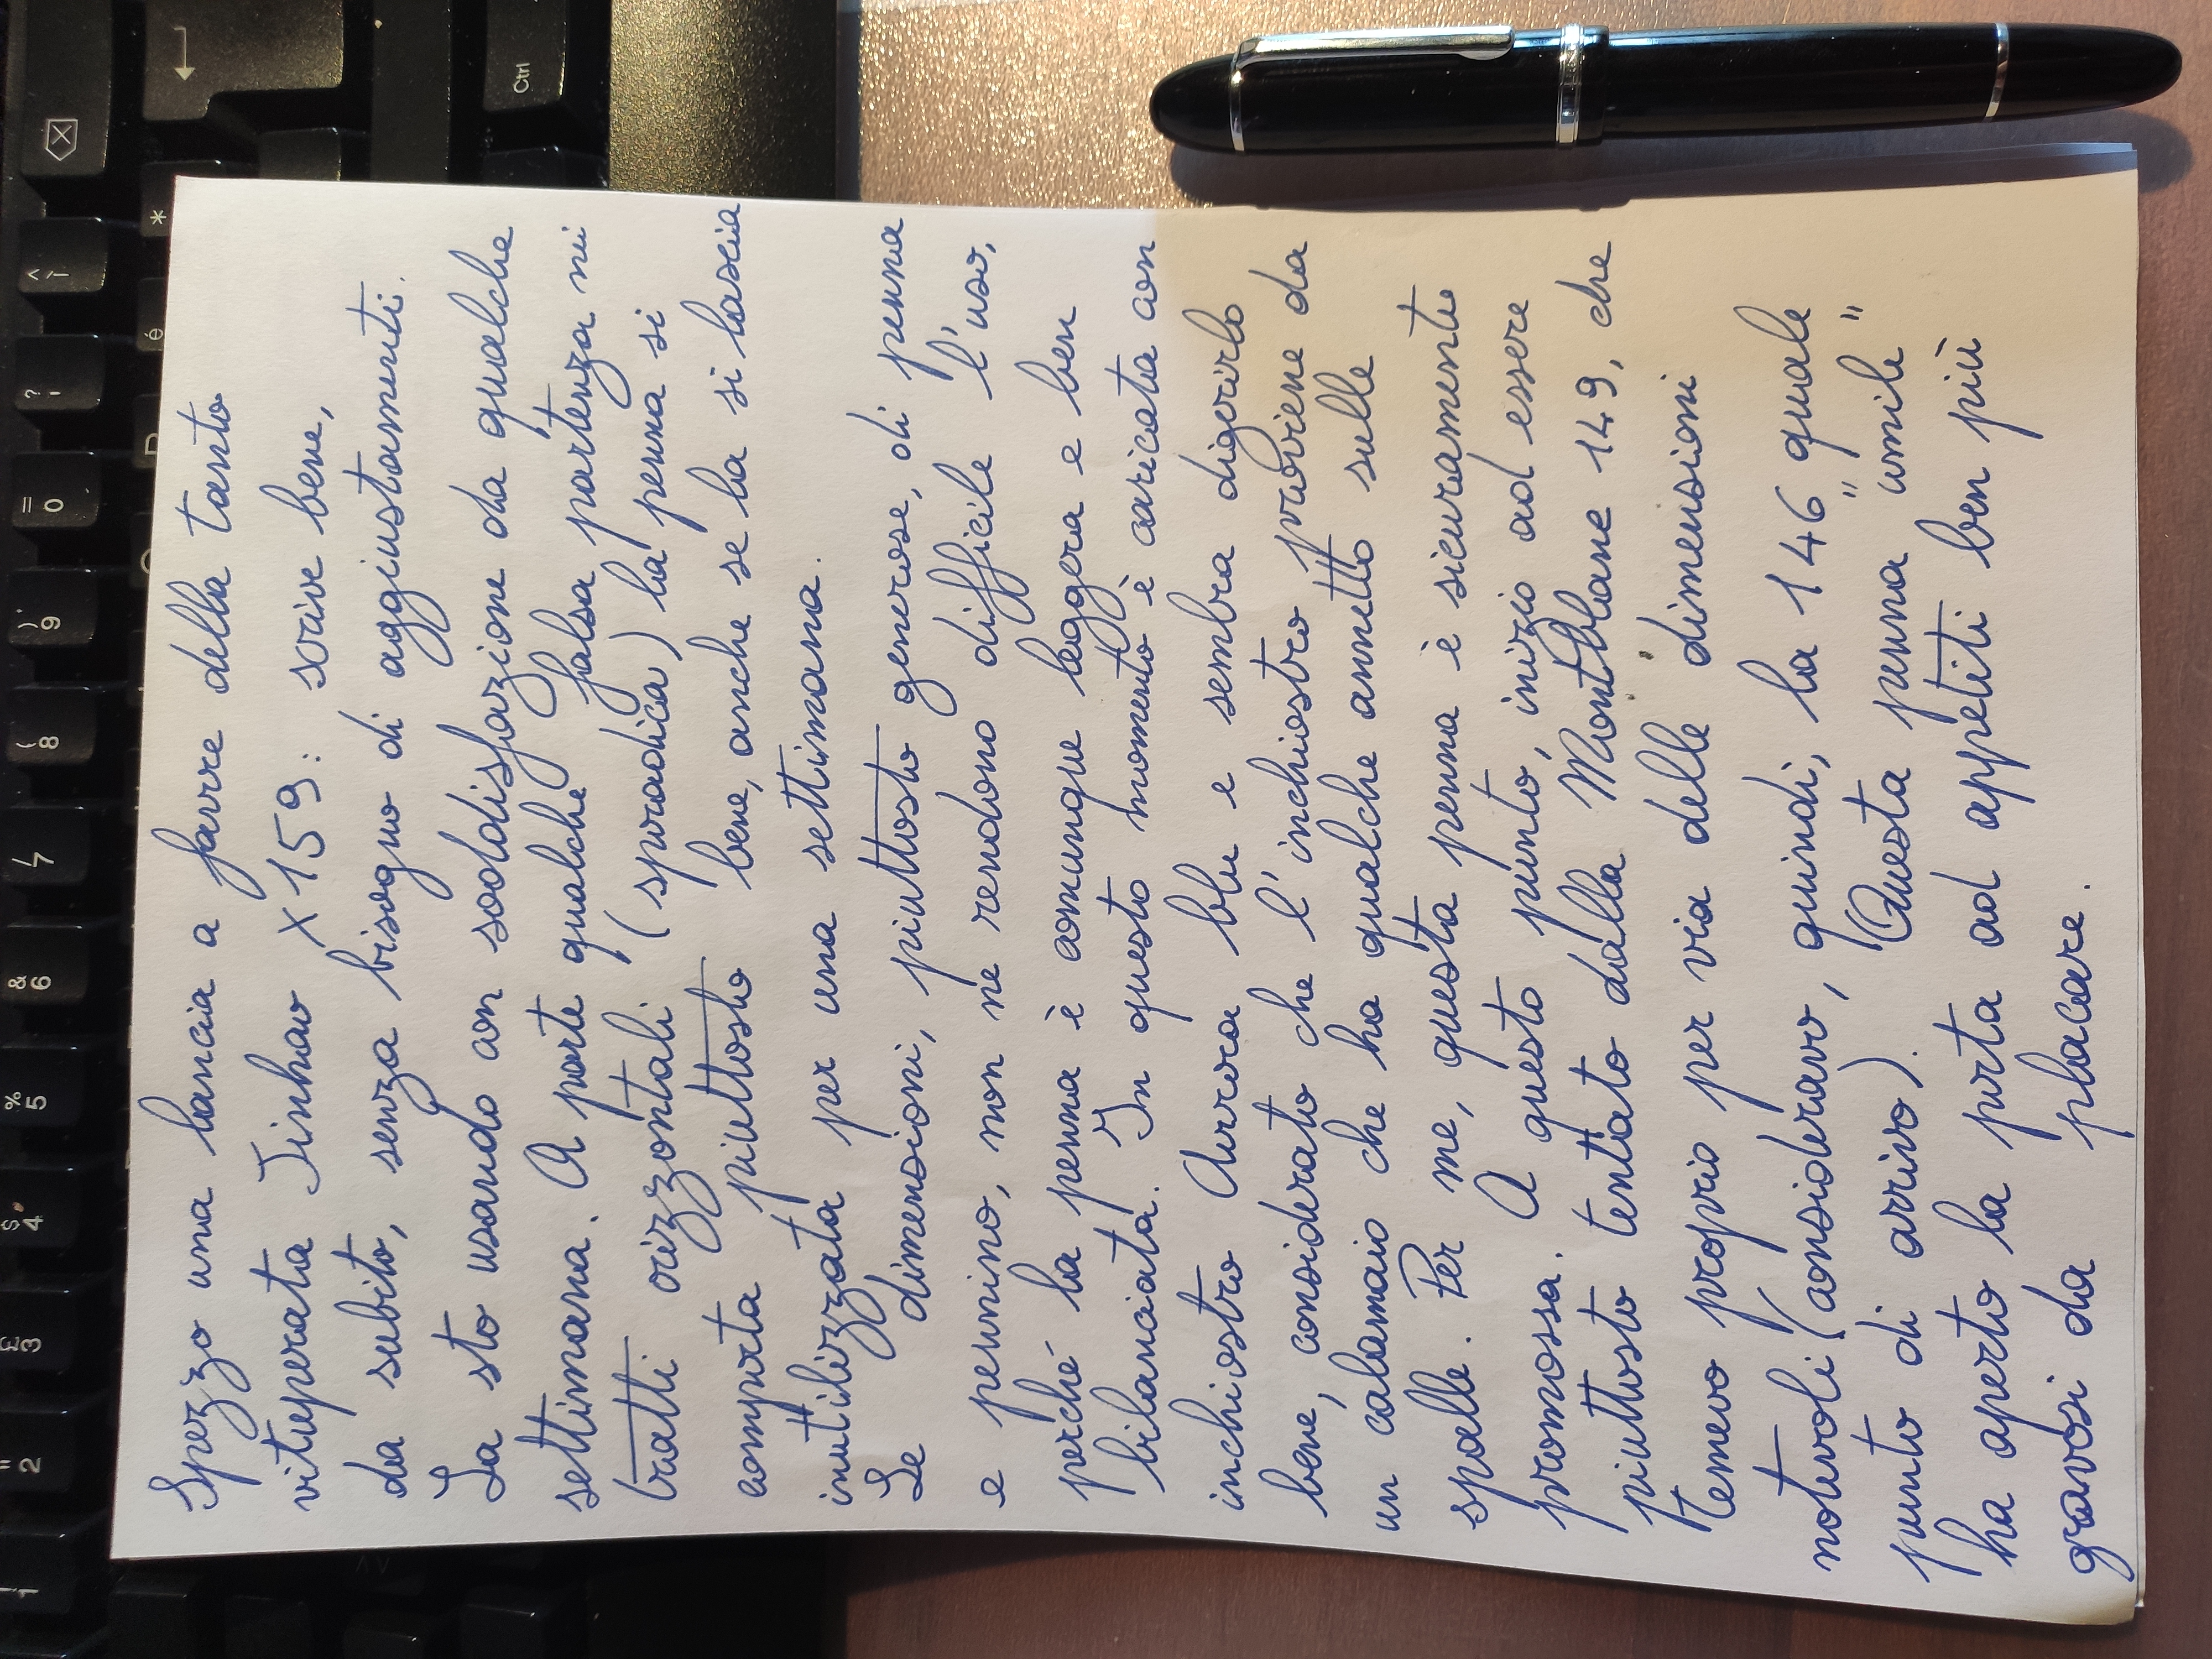 Spezzo una lancia a favore della tanto
vituperata Jinhao X159: scrive bene,
da subito, senza bisogno di aggiustamenti.
La sto usando con soddisfazione da qualche
settimana. A parte qualche falsa partenza nei
tratti orizzontali (sporadica) la penna si
comporta piuttosto bene, anche se la si lascia
inutilizzata per una settimana.
Le dimensioni, piuttosto generose, di penna
e pennino, non ne rendono difficile l'uso,
perché la penna è comunque leggera e ben
bilanciata. In questo momento è caricata con
inchiostro Aurora blu e sembra digerirlo
bene, considerato che l'inchiostro proviene da
un calamaio che ha qualche annetto sulle
spalle. Per me, questa penna è sicuramente
promossa. A questo punto, inizio ad essere
piuttosto tentato dalla Montblanc 149, che
temevo proprio per via delle dimensioni
notevoli (consideravo, quindi, la 146 quale
punto di arrivo). Questa penna "umile"
ha aperto la porta ad appetiti ben più
gravosi da placare.
Ctrl
*
^
ì
?
'
é
=
0
)
9
(
8
/
7
&
6
%
5
$
4
£
3
"
2
!
1